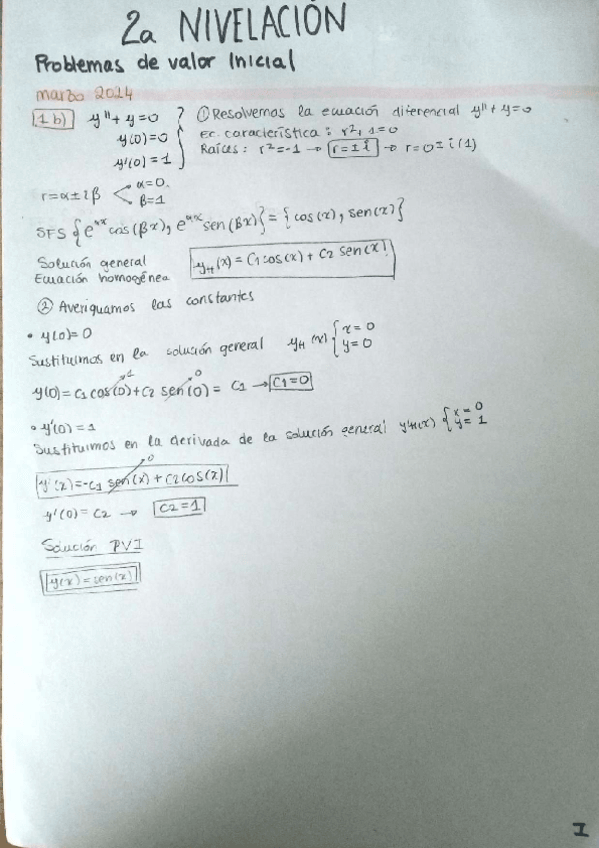 2a NIVELACIÓN
Problemas de valor Inicial
marzo 2014
1 b) y'' + y = 0 ① Resolvemos la ecuación diferencial y'' + y = 0
y(0) = 0 Ec. característica: r², 1 = 0
y'(0) = 1 Raíces: r² = -1 → r = ± i → r = 0 ± i (1)
r = α ± i β α = 0
β = 1
SFS {e^αx cos(βx), e^αx sen(βx)} = {cos(x), sen(x)}
Solución general
Ecuación homogénea yH(x) = C1 cos(x) + C2 sen(x)
② Averiguamos las constantes
• y(0) = 0
Sustituimos en la solución general yH(x) { x = 0
y = 0
y(0) = C1 cos(0) + C2 sen(0) = C1 → C1 = 0
• y'(0) = 1
Sustituimos en la derivada de la solución general y'H(x) { x = 0
y = 1
y'(x) = -C1 sen(x) + C2 cos(x)
y'(0) = C2 → C2 = 1
Solución PVI
y(x) = sen(x)
I